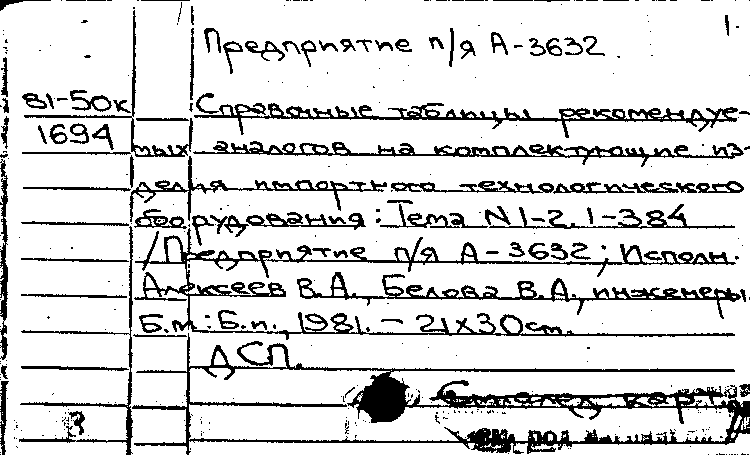 1.
Предприятие п/я А-3632.
81-50к Справочные таблицы рекомендуе-
1694 мых аналогов на комплектующие из-
делия импортного технологического
оборудования: Тема N1-2.1-384
/Предприятие п/я А-3632; Исполн.
Алексеев В.А., Белова В.А., инженеры.
Б.м: Б.и., 1981. - 21х30cm.
ДСП.
карт.
3
под